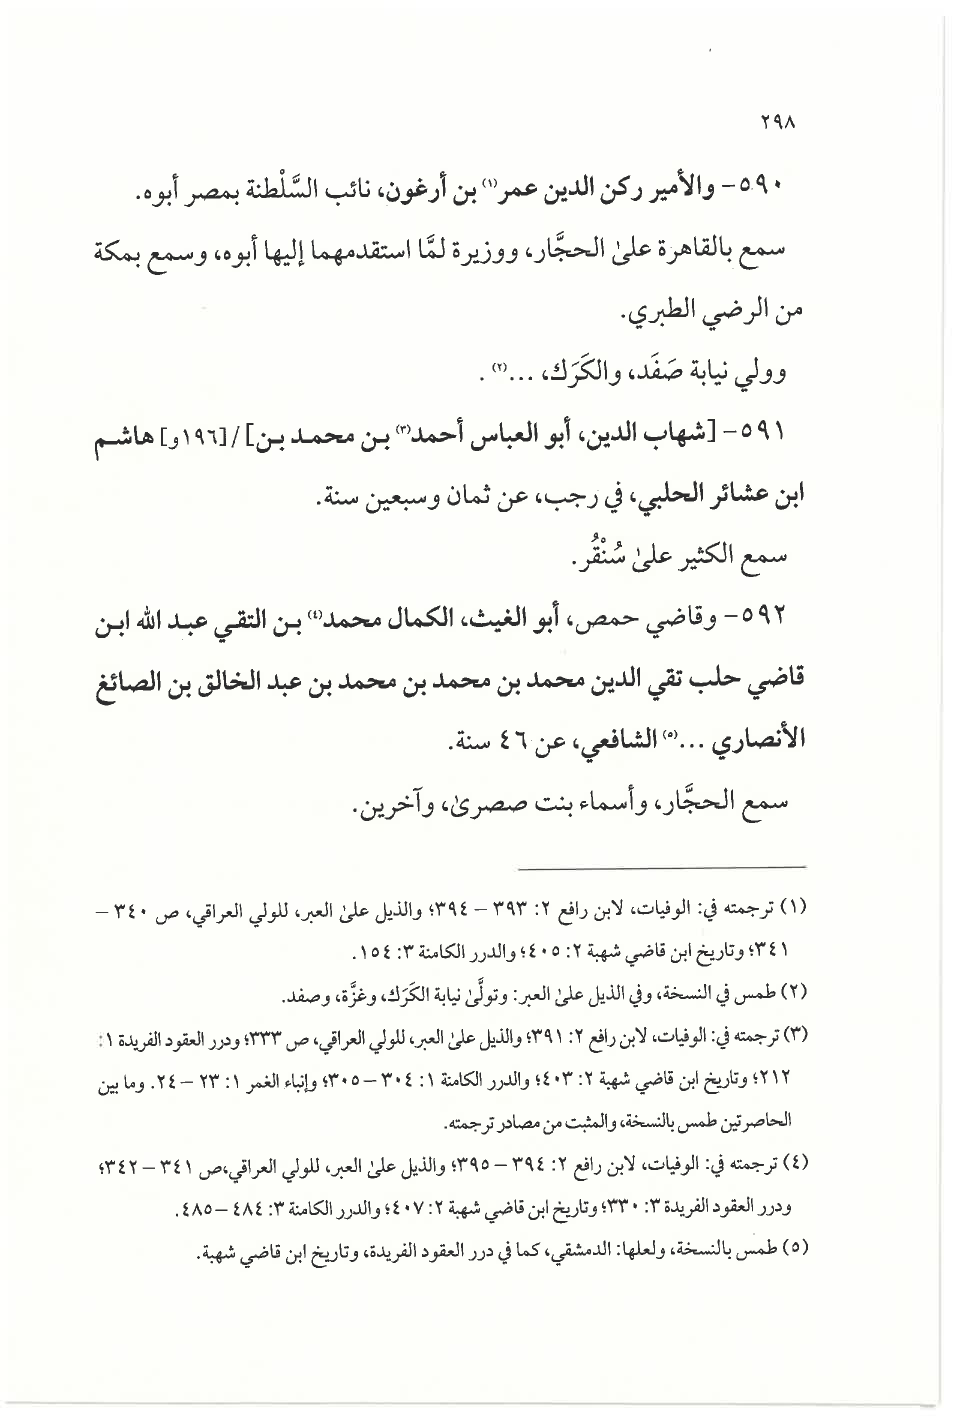 ٢٩٨
٥٩٠- والأمير ركن الدين عمر(١) بن أرغون، نائب السَّلْطنة بمصر أبوه.
سمع بالقاهرة علىٰ الحجَّار، ووزيرة لمَّا استقدمهما إليها أبوه، وسمع بمكة
من الرضي الطبري.
وولي نيابة صَفَد، والكَرَك، ...(٢) .
٥٩١- [شهاب الدين، أبو العباس أحمد(٣) بن محمد بن] / [١٩٦و] هاشم
ابن عشائر الحلبي، في رجب، عن ثمان وسبعين سنة.
سمع الكثير علىٰ سُنْقُر.
٥٩٢- وقاضي حمص، أبو الغيث، الكمال محمد(٤) بن التقي عبد الله ابن
قاضي حلب تقي الدين محمد بن محمد بن محمد بن عبد الخالق بن الصائغ
الأنصاري ...(٥) الشافعي، عن ٤٦ سنة.
سمع الحجَّار، وأسماء بنت صصرىٰ، وآخرين.
(١) ترجمته في: الوفيات، لابن رافع ٢: ٣٩٣ – ٣٩٤؛ والذيل علىٰ العبر، للولي العراقي، ص ٣٤٠ –
٣٤١؛ وتاريخ ابن قاضي شهبة ٢: ٤٠٥؛ والدرر الكامنة ٣: ١٥٤.
(٢) طمس في النسخة، وفي الذيل علىٰ العبر: وتولَّىٰ نيابة الكَرَك، وغزَّة، وصفد.
(٣) ترجمته في: الوفيات، لابن رافع ٢: ٣٩١؛ والذيل علىٰ العبر، للولي العراقي، ص ٣٣٣؛ ودرر العقود الفريدة ١:
٢١٢؛ وتاريخ ابن قاضي شهبة ٢: ٤٠٣؛ والدرر الكامنة ١: ٣٠٤ – ٣٠٥؛ وإنباء الغمر ١: ٢٣ – ٢٤. وما بين
الحاصرتين طمس بالنسخة، والمثبت من مصادر ترجمته.
(٤) ترجمته في: الوفيات، لابن رافع ٢: ٣٩٤ – ٣٩٥؛ والذيل علىٰ العبر، للولي العراقي،ص ٣٤١ – ٣٤٢؛
ودرر العقود الفريدة ٣: ٣٣٠؛ وتاريخ ابن قاضي شهبة ٢: ٤٠٧؛ والدرر الكامنة ٣: ٤٨٤ – ٤٨٥.
(٥) طمس بالنسخة، ولعلها: الدمشقي، كما في درر العقود الفريدة، وتاريخ ابن قاضي شهبة.